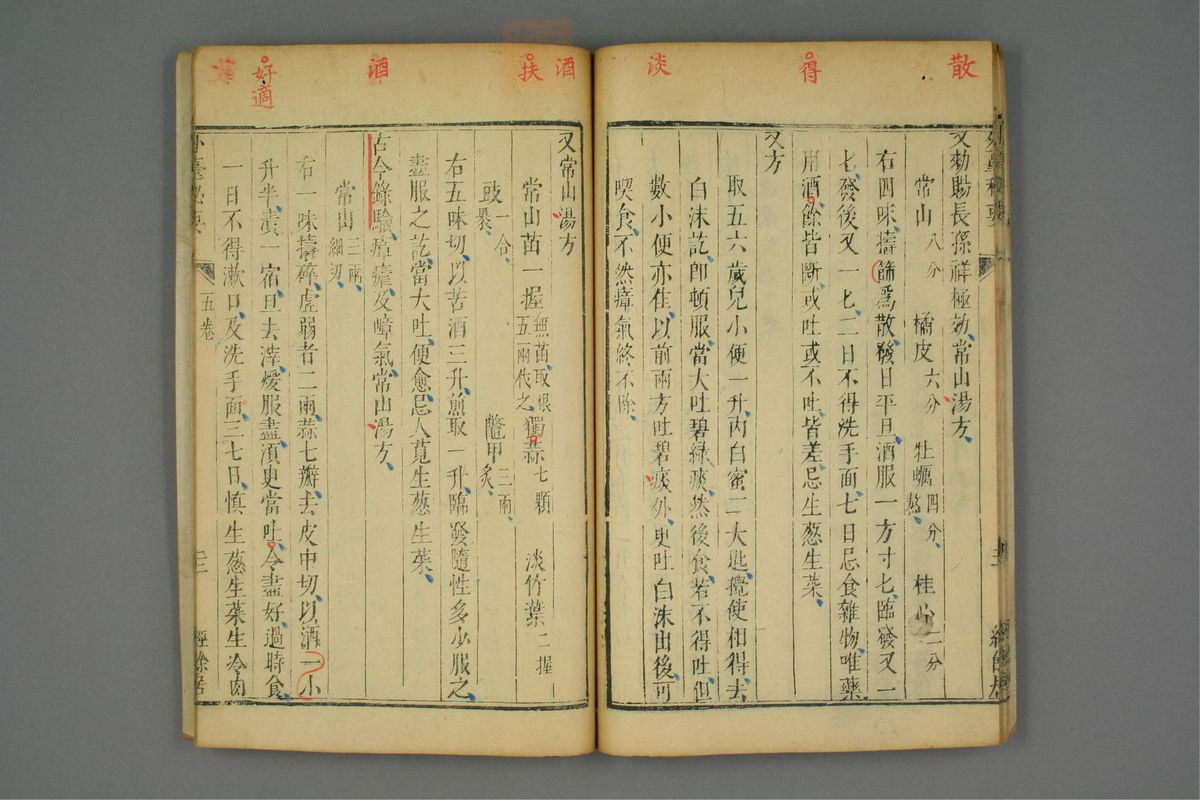 散
得
淡
又効賜長孫祥極効常山湯方
常山八分 橘皮六分 牡蠣四分熬 桂心二分
右四味擣篩爲散發日平旦酒服一方寸匕臨發又一
匕發後又一匕二日不得洗手面七日忌食雜物唯藥
用酒餘皆斷或吐或不吐皆差忌生葱生菜
又方
取五六歲兒小便一升內白蜜二大匙攪使相得去
白沫訖卽頓服當大吐碧綠痰然後食若不得吐但
數小便亦佳以前兩方吐碧痰外更吐白沫由後可
喫食不然瘴氣終不除
酒
扶
酒
好適
又常山湯方
常山苗一握無苗取根五兩代之 獨蒜七顆 淡竹葉二握
豉一合暴 鼈甲二兩炙
右五味切以苦酒三升煎取一升臨發隨性多少服之
盡服之訖當大吐便愈忌人莧生葱生菜
古今錄驗瘧瘴及嶂氣常山湯方
常山三兩細切
右一味擣碎虛弱者二兩蒜七瓣去皮中切以酒一小
升半漬一宿旦去滓煖服盡須更當吐令盡好過時食
一日不得漱口及洗手面三七日慎生葱生菜生冷肉
外臺秘要 五卷 三 經餘居